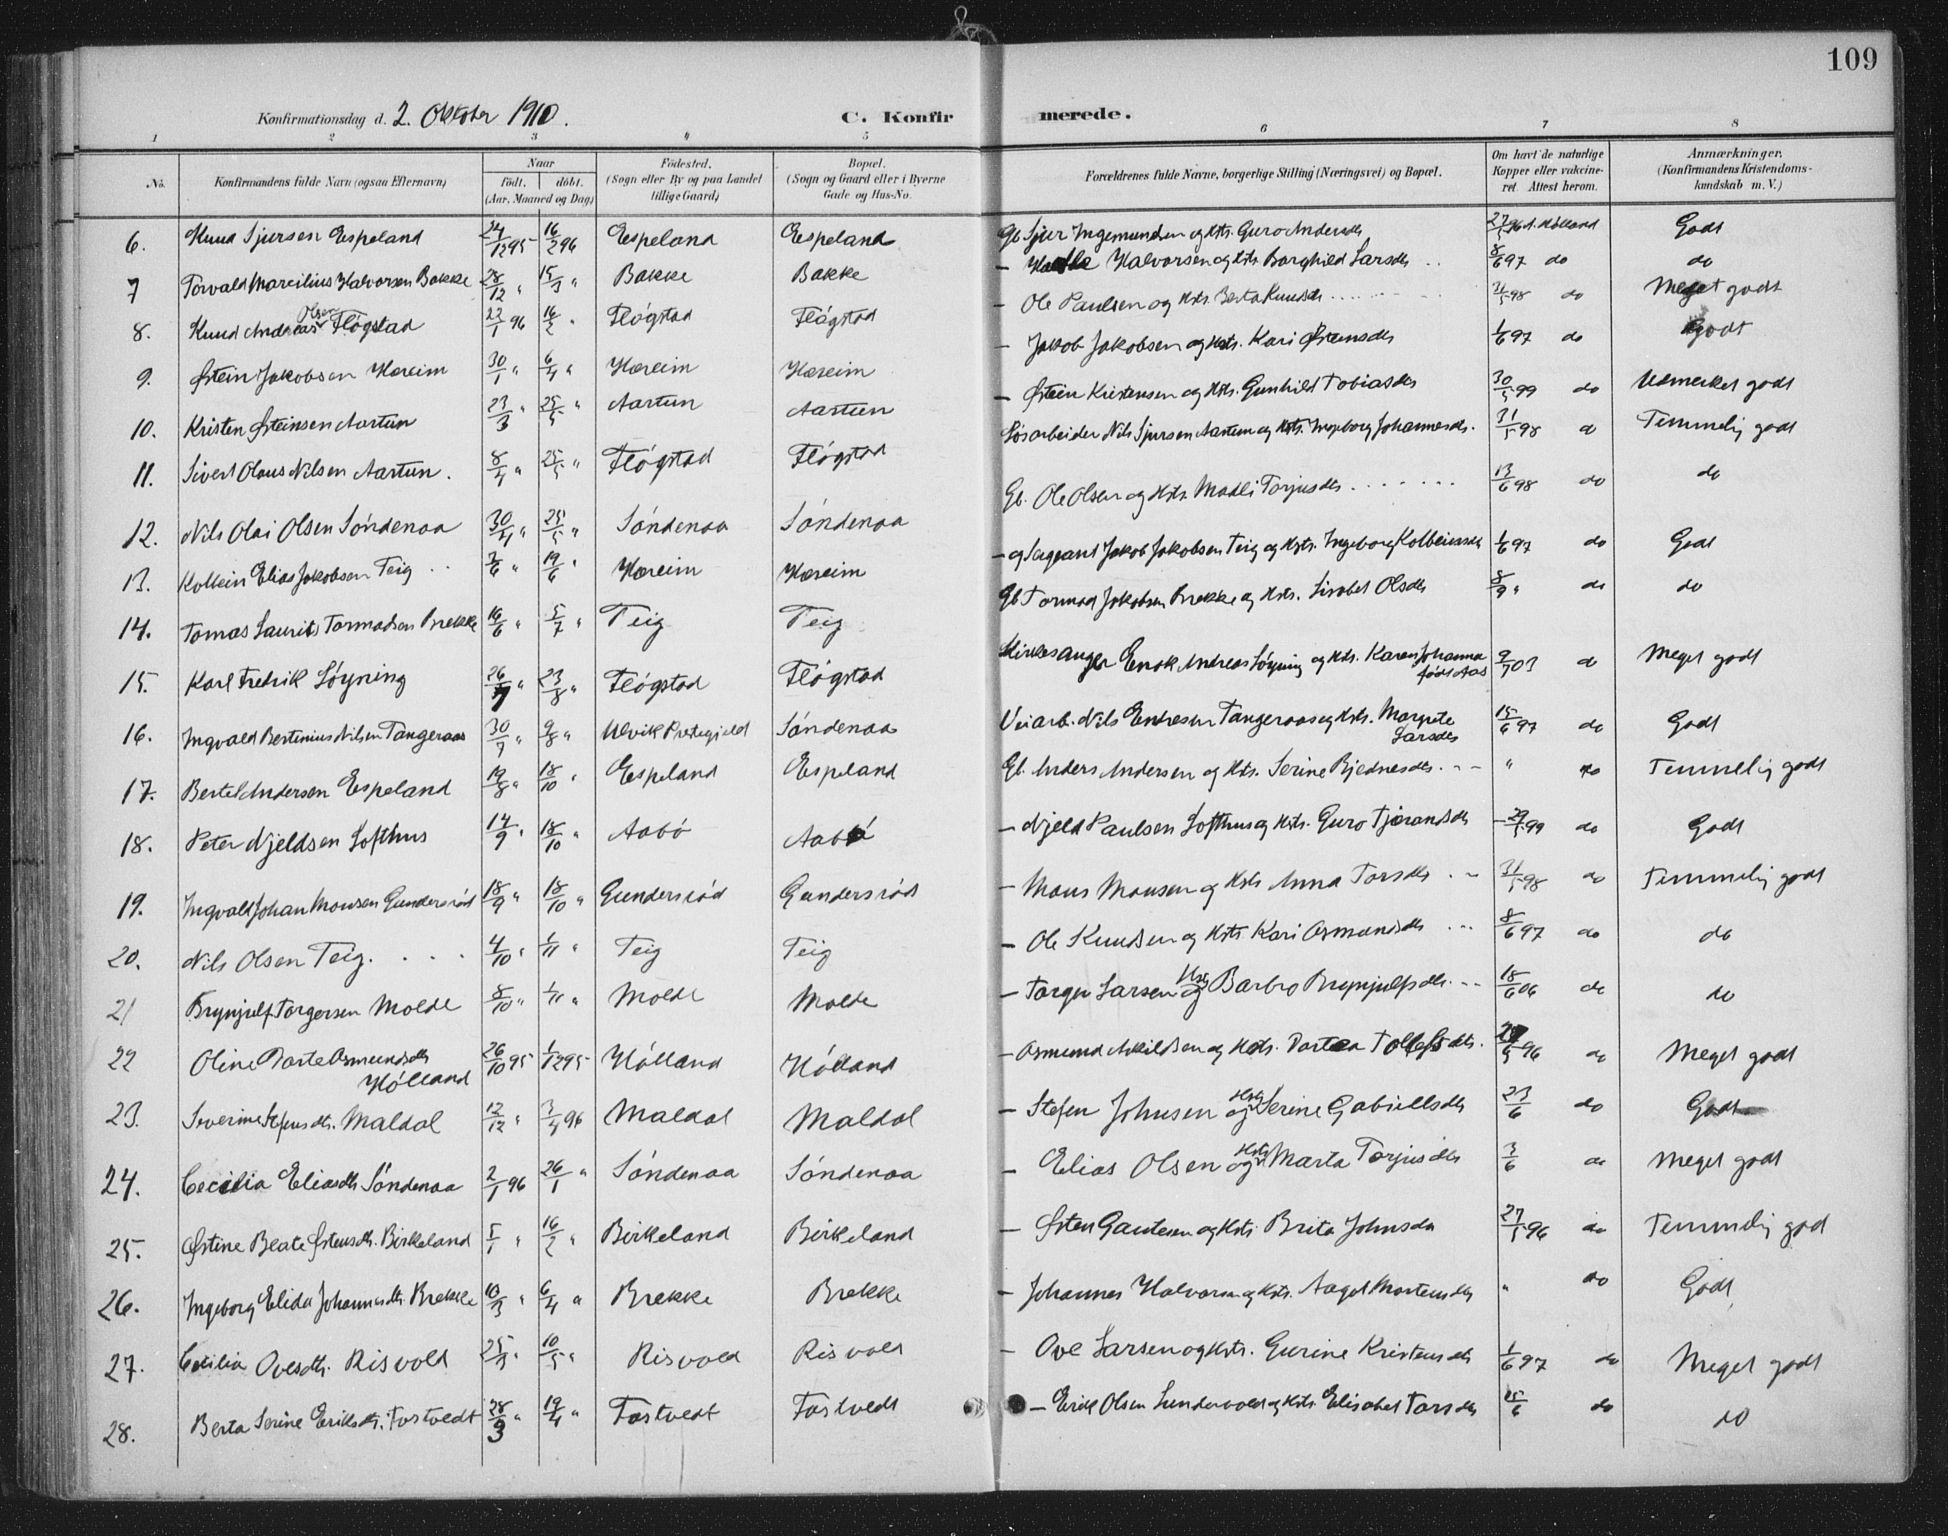 109
Konfirmationsdag d. 2. Oktober 1910.
C. Konfirmerede.
1 2 3 4 5 6 7 8
No. | Konfirmandens fulde Navn (ogsaa Efternavn) | Naar født. døbt. (Aar, Maaned og Dag) | Fødested. (Sogn eller By og paa Landet tillige Gaard) | Bopæl. (Sogn og Gaard eller i Byerne Gade og Hus-No. | Forældrenes fulde Navne, borgerlige Stilling (Næringsvei) og Bopæl. | Om havt de naturlige Kopper eller vakcineret. Attest herom. | Anmærkninger. (Konfirmandens Kristendomskundskab m. V.)
6. Knud Sjursen Espeland 24/12 95 16/2 96 Espeland Espeland Gb. Sjur Ingemundsen og Hstr. Guro Andersdtr 27/5 96 A. Hølland Godt
7 Torvald Marcilius Halvorsen Bakke 28/12 " 15/1 " Bakke Bakke — Halvorsen og Hstr. Borghild Larsdtr 8/6 97 do do
8. Knud Andreas Olsen Fløgstad 22/1 96 16/2 " Fløgstad Fløgstad — Ole Paulsen og Hstr. Berta Knudsdtr 31/5 98 do Meget godt
9. Østein Jakobsen Hæreim 30/1 " 6/4 " Hæreim Hæreim — Jakob Jakobsen og Hstr. Kari Østensdtr 1/6 97 do Godt
10. Kristen Østeinsen Aartun 23/3 " 25/5 " Aartun Aartun — Østein Kristensen og Hstr. Gunhild Tobiasdtr 30/5 99 do Udmerket godt
11. Sivert Olaus Nilsen Aartun. 8/4 " 25/5 " Fløgstad Fløgstad Løsarbeider Nils Sjursen Aartun og Hstr. Ingeborg Johannesdtr. 31/5 98 do Temmelig godt
12. Nils Olai Olsen Søndenaa 30/4 " 25/5 " Søndenaa Søndenaa Gb. Ole Olsen og Hstr. Madli Torjusdtr 13/6 98 do do
13. Kolbein Elias Jakobsen Teig 2/6 " 19/6 " Hæreim Hæreim — og Sergeant Jakob Jakobsen Teig og Hstr. Ingeborg Kolbeinsdtr 1/6 97 do Godt
14. Tomas Laurits Tormodsen Brekke 16/6 " 5/7 " Teig Teig Gb Tormod Jakobsen Brekke og Hstr. Lisabet Olsdtr 8/9 " do do
15. Karl Fredrik Løyning 26/7 " 23/8 " Fløgstad Fløgstad Kirkesanger Enok Andreas Løyning og Hstr. Karen Johanna født Aas 9/7 03 do Meget godt
16. Ingvald Bertinius Nilsen Tangeraas 30/7 " 9/8 " Ulvik Prestegjeld Søndenaa Veiarb. Nils Endresen Tangeraas og Hstr. Margrete Larsdtr 15/6 97 do Godt
17. Bertel Andersen Espeland 19/8 " 18/10 " Espeland Espeland Gb. Anders Andersen og Hstr. Serine Bjednesdtr. " do Temmelig godt
18. Peter Njeldsen Lofthus 14/9 " 18/10 " Aabø Aabø — Njeld Paulsen Lofthus og Hstr. Guro Tjerandsdtr 29/5 99 do Godt
19. Ingvald Johan Monsen Gundersrød 18/9 " 18/10 " Gundersrød Gundersrød — Mons Monsen og Hstr Anna Torsdtr 31/5 98 do Temmelig godt
20. Nils Olsen Teig 4/10 " 1/11 " Teig Teig — Ole Knudsen og Hstr Kari Osmundsdtr 8/6 97 do do
21 Brynjulf Torgersen Molde 8/10 " 1/11 " Molde Molde — Torger Larsen og Hstr Barbro Brynjulfsdtr 18/6 06 do do
22 Oline Dorte Osmundsdtr Hølland 26/10 95 1/12 95 Hølland Hølland — Osmund Askildsen og Hstr. Dortea Tollefsdtr. /5 96 do Meget godt
23. Severine Stefensdtr. Maldal 12/12 " 3/4 96 Maldal Maldal — Stefen Johnsen og Hstr Serine Gabrielsdtr 23/6 do Godt
24. Cecilia Eliasdtr Søndenaa 2/1 96 26/1 " Søndenaa Søndenaa — Elias Olsen og Hstr Marta Torjusdtr 3/6 do Meget godt
25. Østine Beate Østensdtr. Birkeland 5/1 " 16/2 " Birkeland Birkeland — Østen Gautesen og Hstr Brita Johnsdtr 27/5 96 do Temmelig god
26. Ingeborg Elida Johannesdtr. Brekke 10/3 " 6/4 " Brekke Brekke — Johannes Halvorsen og Hstr. Aagot Mortensdtr " do Godt
27. Cecilia Ovesdtr. Risvold 25/3 " 10/5 " Risvold Risvold — Ove Larsen og Hstr. Gurine Kristensdtr 1/6 97 do Meget godt
28. Berta Serine Eriksdtr. Fostvedt 28/3 " 19/4 " Fostvedt Fostvedt — Erik Olsen Sundsvold og Hstr Elisabet Torsdtr 15/6 do do